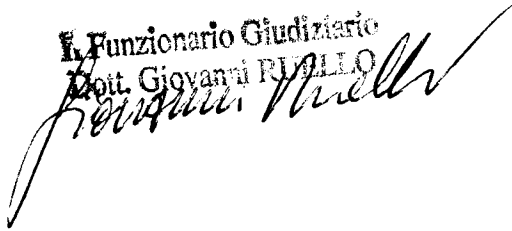 Il Funzionario Giudiziario
Dott. Giovanni RUELLO
Giovanni Ruello